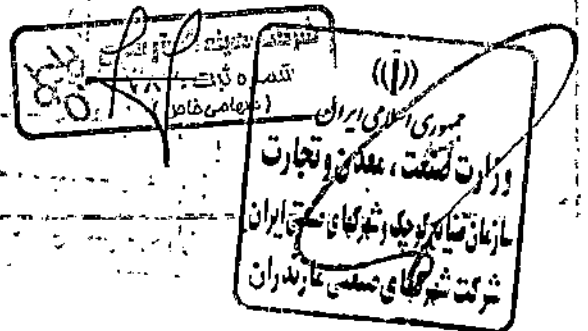 شماره ثبت
(سهامی خاص)
جمهوری اسلامی ایران
وزارت صنعت، معدن و تجارت
سازمان صنایع کوچک و شهرکهای صنعتی ایران
شرکت شهرکهای صنعتی مازندران